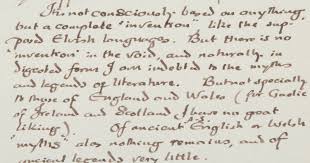 It is not consciously based on anything
but a complete "invention" like the sup-
posed Elvish languages. But there is no
'invention' in the void, and naturally in
digested form I am indebted to the myths
and legends of literature. But not specially
to those of England and Wales (for Gaelic
of Ireland and Scotland I have no great
liking). Of ancient English or Welsh
"myths" alas nothing remains, and of
ancient legends very little.